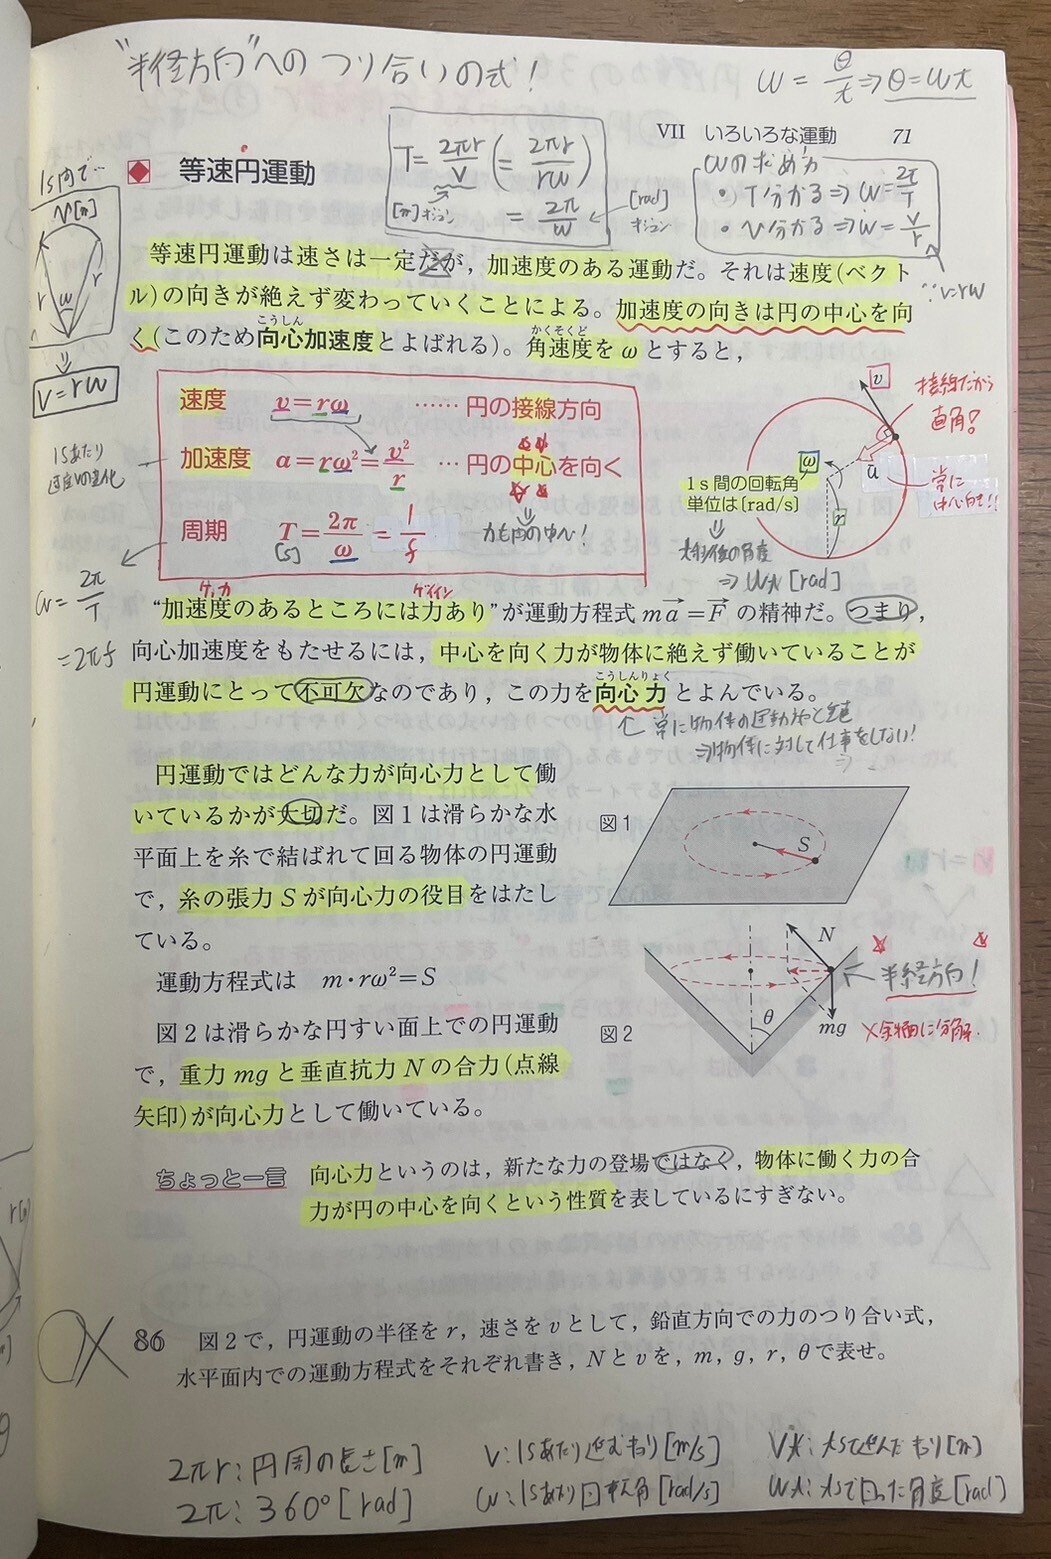 "半径方向"への つり合いの式!
ω = θ/t ⇒ θ = ωt
VII いろいろな運動 71
等速円運動
T = 2πr/v (= 2πr/rω)
= 2π/ω
[m]
[rad]
ωの求め方
・T分かる ⇒ ω = 2π/T
・v分かる ⇒ ω = v/r
∵ v=rω
1s間で…
v[m]
r
r
ω
⇓
v=rω
等速円運動は速さは一定だが，加速度のある運動だ。それは速度(ベクト
ル)の向きが絶えず変わっていくことによる。加速度の向きは円の中心を向
く(このため向心加速度とよばれる)。角速度をωとすると，
こうしん
かくそくど
速度 v=rω …… 円の接線方向
加速度 a=rω²=v²/r … 円の中心を向く
周期 T=2π/ω = 1/f
[s]
力も円の中心!
1sあたり
速度vの変化
ω = 2π/T
= 2πf
v
a
ω
r
1s間の回転角
単位は[rad/s]
接線だから
直角?
常に
中心向き!!
t秒後の角度
⇒ ωt [rad]
“加速度のあるところには力あり”が運動方程式 ma=F の精神だ。つまり，
向心加速度をもたせるには，中心を向く力が物体に絶えず働いていることが
円運動にとって不可欠なのであり，この力を向心力とよんでいる。
こうしんりょく
⇒物体に対して仕事をしない!
円運動ではどんな力が向心力として働
いているかが大切だ。図1は滑らかな水
平面上を糸で結ばれて回る物体の円運動
で，糸の張力Sが向心力の役目をはたし
ている。
運動方程式は m・rω²=S
図1
S
図2は滑らかな円すい面上での円運動
で，重力mgと垂直抗力Nの合力(点線
矢印)が向心力として働いている。
図2
N
θ
mg
半径方向!
×斜面に分解
ちょっと一言 向心力というのは，新たな力の登場ではなく，物体に働く力の合
力が円の中心を向くという性質を表しているにすぎない。
86 図2で，円運動の半径をr，速さをvとして，鉛直方向での力のつり合い式，
水平面内での運動方程式をそれぞれ書き，Nとvを，m，g，r，θで表せ。
2πr：円周の長さ[m]
2π：360°[rad]
v：1sあたり進むキョリ[m/s]
ω：1sあたり回転角[rad/s]
vt：tsで進んだキョリ[m]
ωt：tsで回った角度[rad]